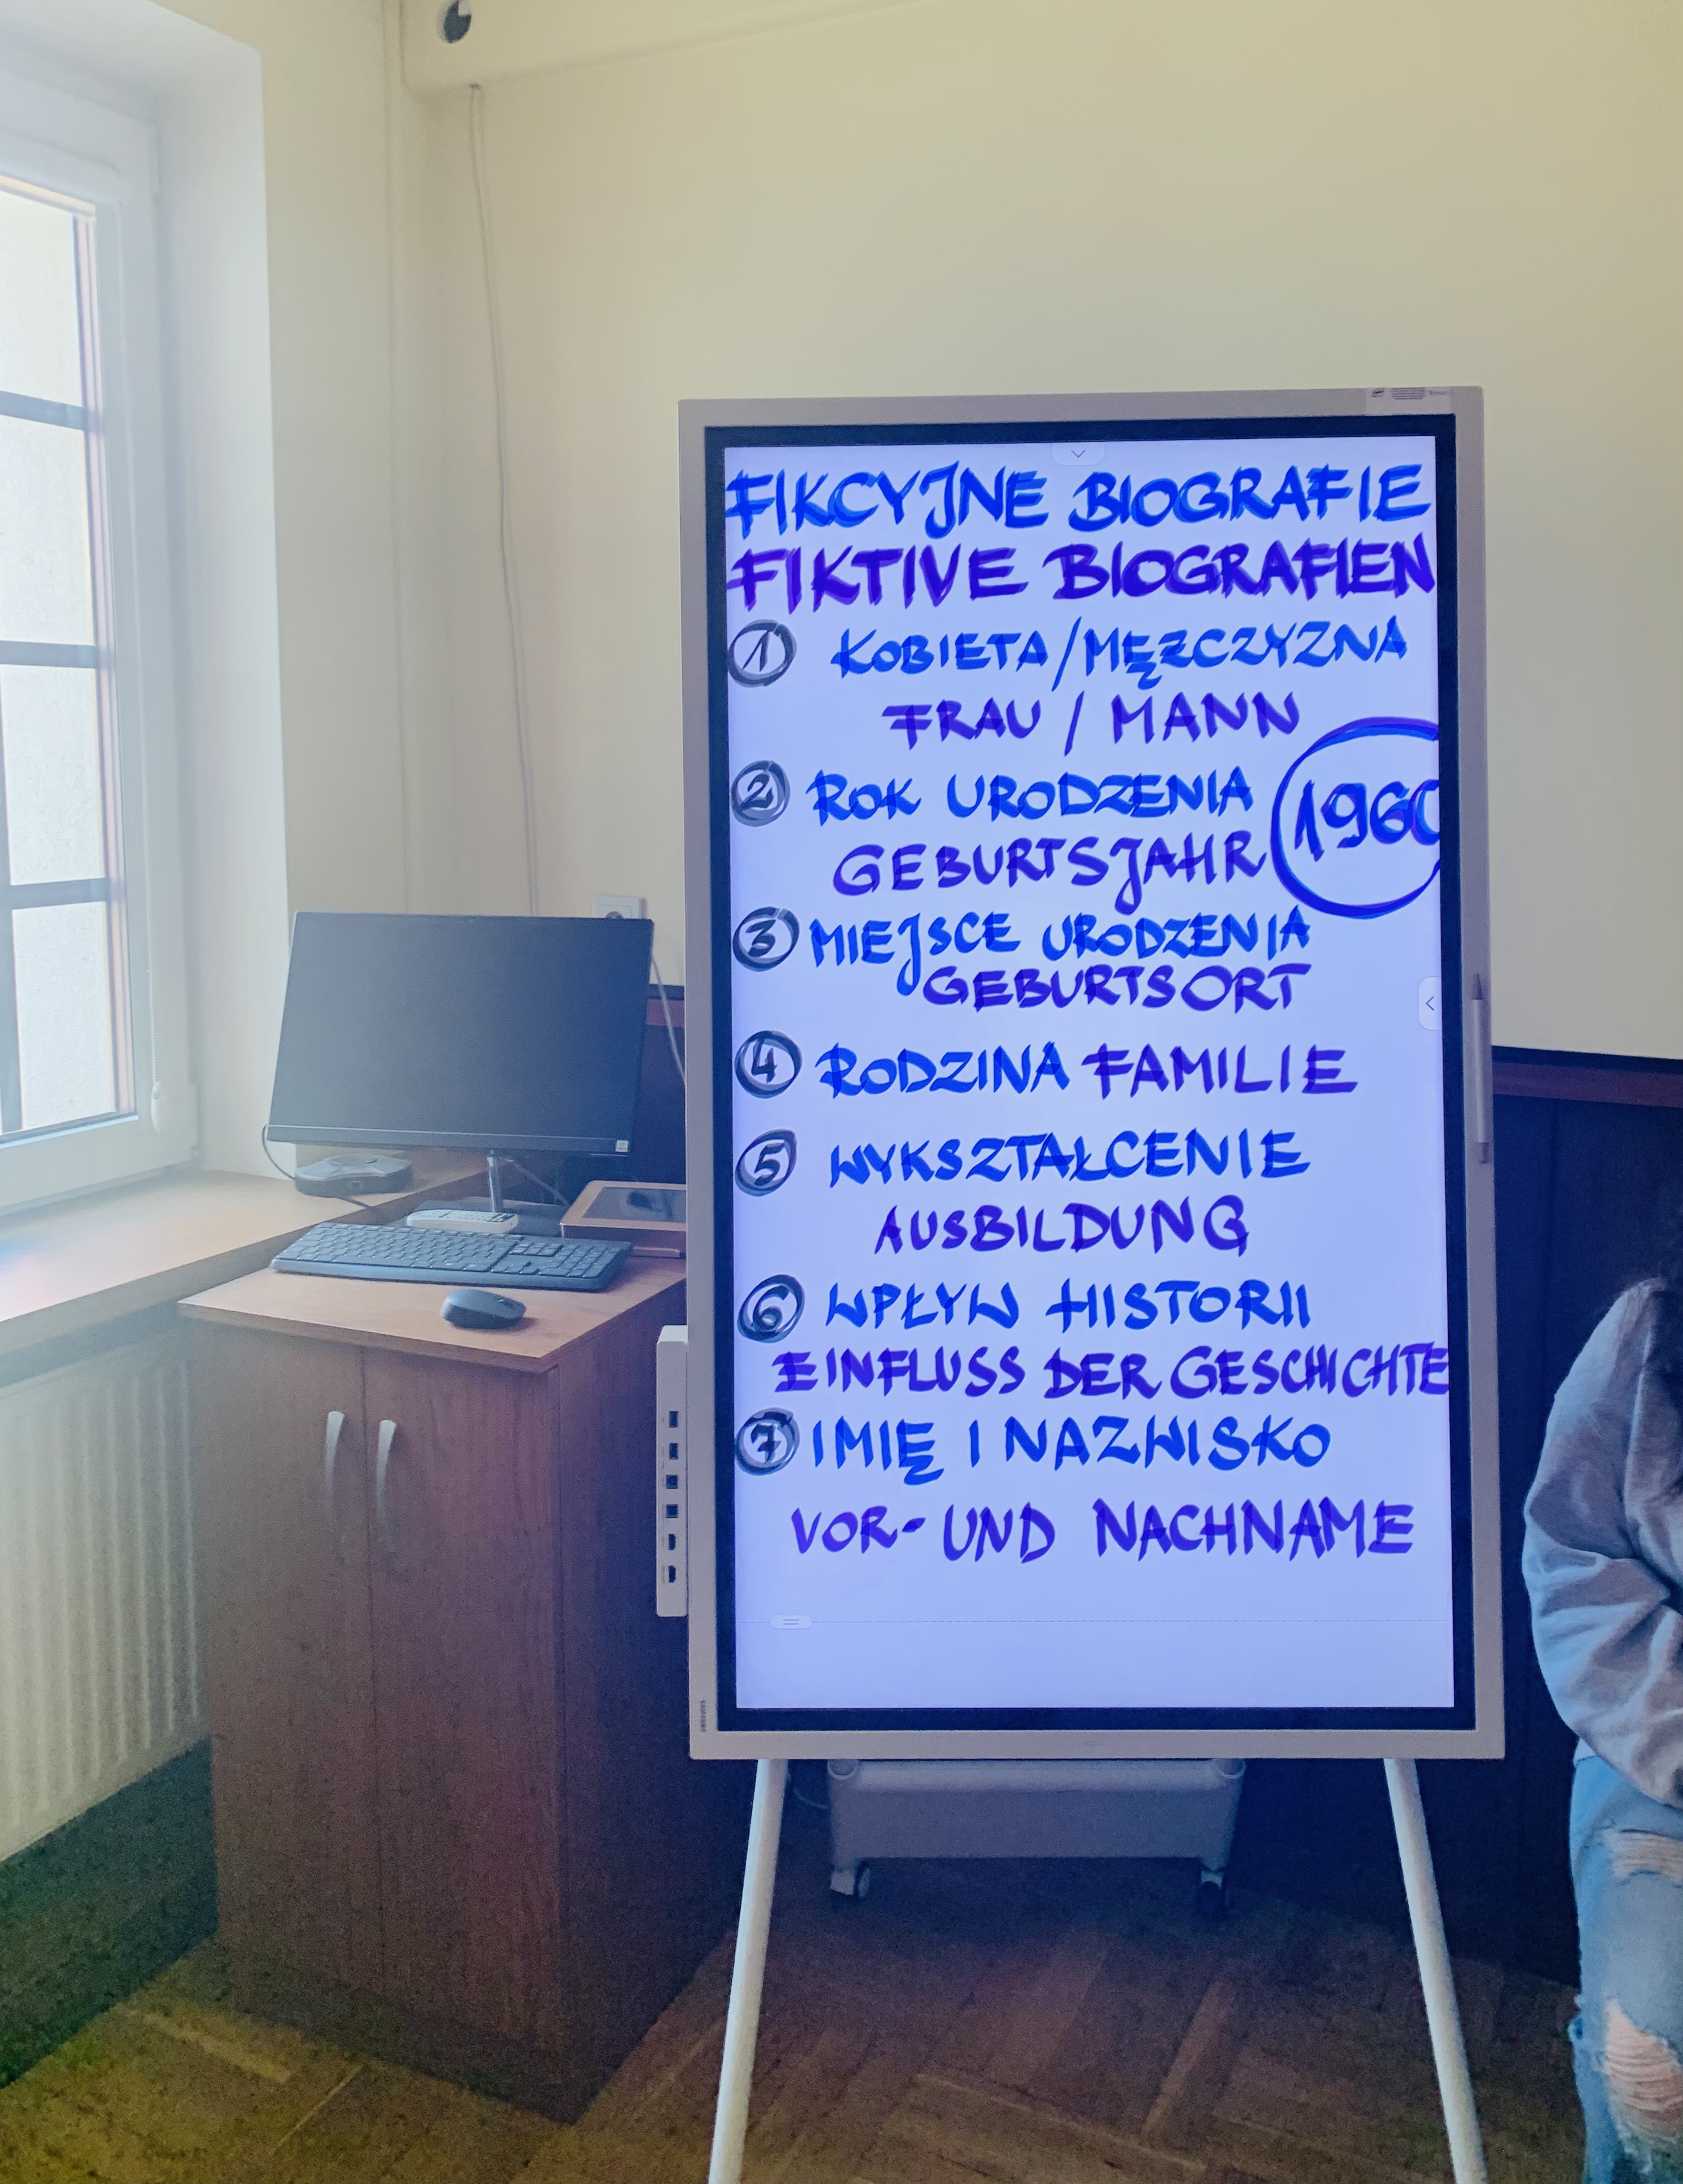 FIKCYJNE BIOGRAFIE
FIKTIVE BIOGRAFIEN
1 KOBIETA/MĘŻCZYZNA
FRAU / MANN
2 ROK URODZENIA
1960
GEBURTSJAHR
3 MIEJSCE URODZENIA
GEBURTSORT
4 RODZINA FAMILIE
5 WYKSZTAŁCENIE
AUSBILDUNG
6 WPŁYW HISTORII
EINFLUSS DER GESCHICHTE
7 IMIĘ I NAZWISKO
VOR- UND NACHNAME
SAMSUNG